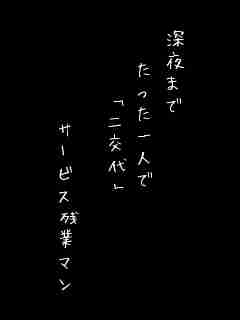 深夜まで
たった一人で
「二交代」
サービス残業マン